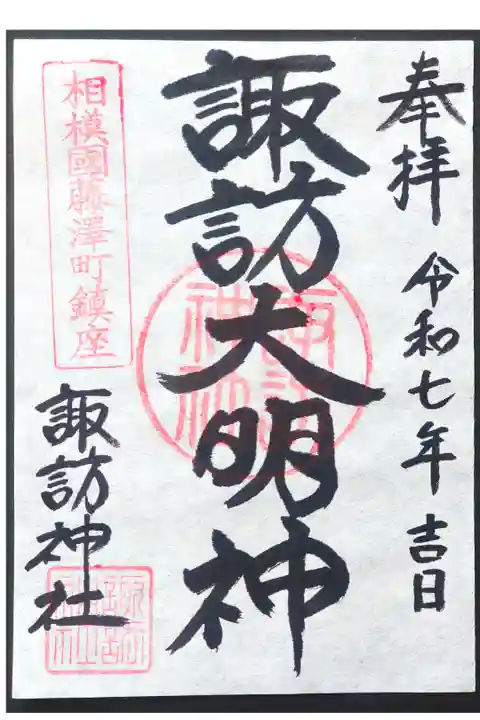 奉拝 令和七年 吉日
諏訪大明神
諏訪神社
相模國藤澤町鎮座
諏訪神社
諏訪神社